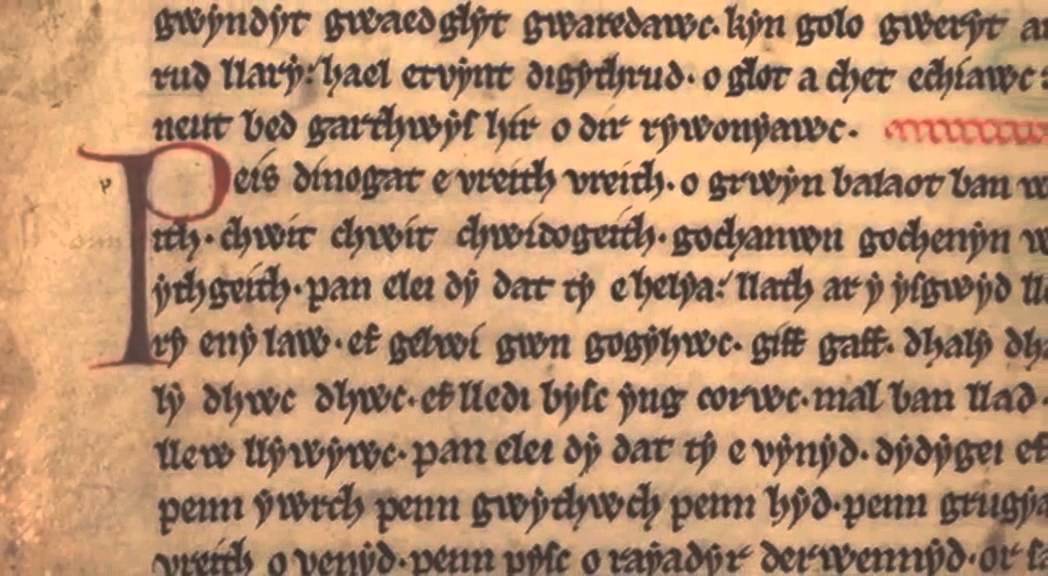 gwyndyt gwaed glyt gwaredawc. kyn golo gweryt
rud llary: hael etvynt digythrud. o glot a chet echiawc:
neut bed garthwys hir o dir rywonyawc.
Peis dinogat e vreith vreith. o grwyn balaot ban
ith. chwit chwit chwidogeith. gochanwn gochenyn
ythgeith. pan elei dy dat ty e helya: llath ar y ysgwyd
ry eny law. ef gelwi gwn gogyhwc. giff gaff. dhaly
ly dhwc dhwc. ef lledi bysc yng corwc. mal ban llad.
llew llywywc. pan elei dy dat ty e vynyd. dydygei ef
penn ywrch penn gwythwch penn hyd. penn
vreith o venyd. penn pysc o rayadyr derwennyd. or